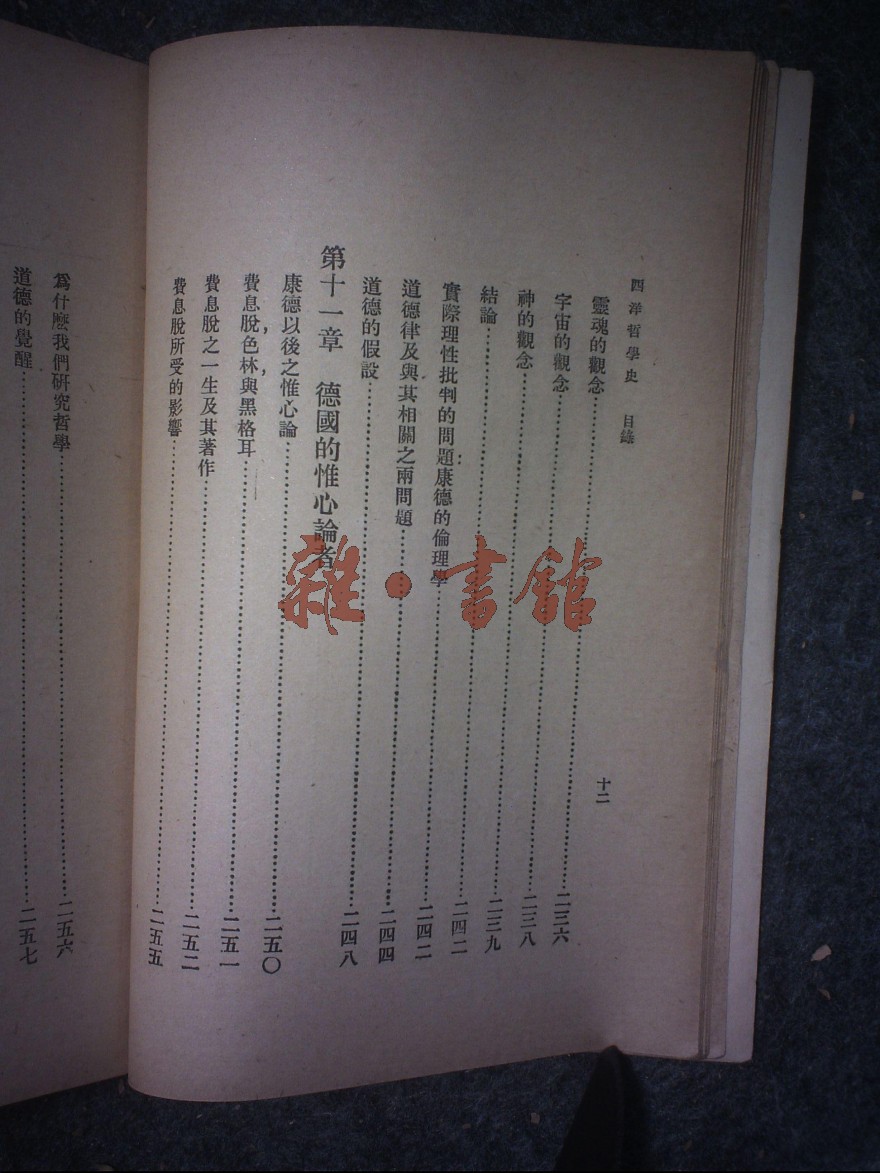 西洋哲學史 目錄
十二
靈魂的觀念……二三六
宇宙的觀念……二三八
神的觀念……二三九
結論……二四二
實際理性批判的問題:康德的倫理學……二四二
道德律及與其相關之兩問題……二四四
道德的假設……二四八
第十一章 德國的惟心論者
康德以後之惟心論……二五〇
費息脫,色林,與黑格耳……二五一
費息脫之一生及其著作……二五二
費息脫所受的影響……二五五
爲什麽我們研究哲學……二五六
道德的覺醒……二五七
雜·書館